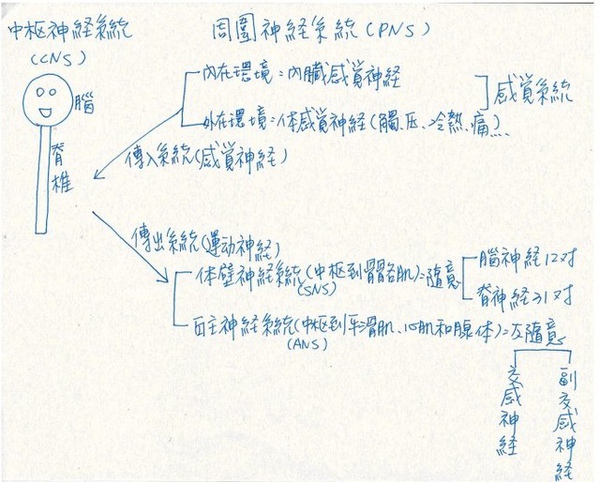 中枢神経系統
(CNS)
周圍神経系統(PNS)
腦
脊椎
内在環境=内臟感覚神経
外在環境=体感覚神経(觸.压.冷熱.痛)...
感覚系統
傳入系統(感覚神経)
傳出系統(運动神経)
体壁神経系統(中枢到骨骼肌)=隨意
(SNS)
腦神経12对
脊神経31对
自主神経系統(中枢到平滑肌、心肌和腺体)=不隨意
(ANS)
交感神経
副交感神経